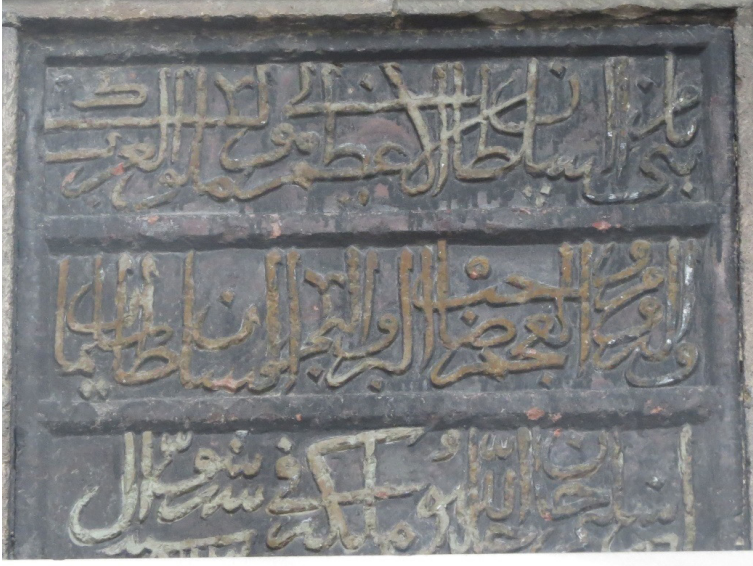 بنى السلطان الاعظم مولى ملوك العرب
والروم والعجم صاحب البر والبحر السلطان سليمان
ابن سليم خان خلد الله ملكه في شهر شوال